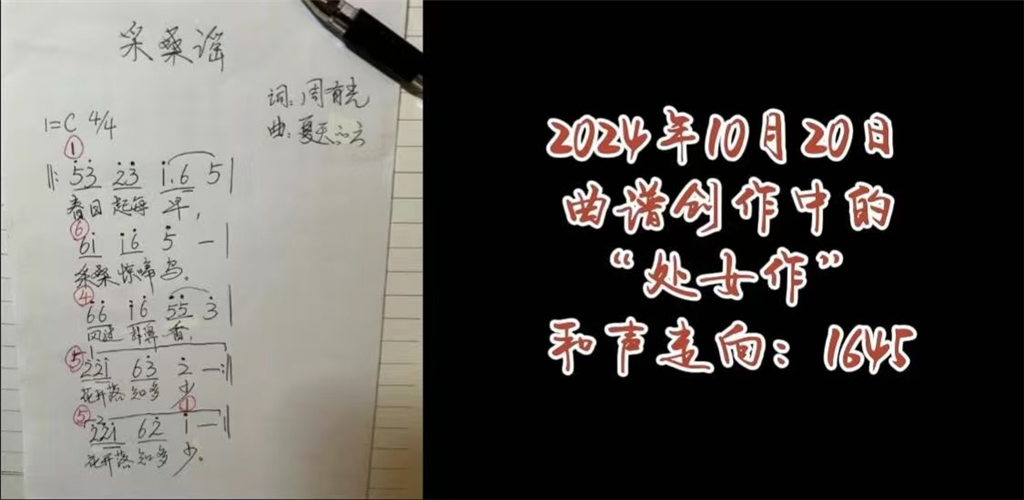 采桑谣
词:周
曲:夏天的云
1=C 4/4
①
‖: 53 23 1.6 5 |
春日 起每 早,
⑥
61 16 5 — |
采桑 惊啼 鸟。
④
66 16 55 3 |
风过 扑鼻 香,
1
⑤
221 63 2 — :‖
花开落 知多 少
⑤ ①
221 62 1 — ‖
花开落 知多 少。
2024年10月20日
曲谱创作中的
“处女作”
和声走向：1645